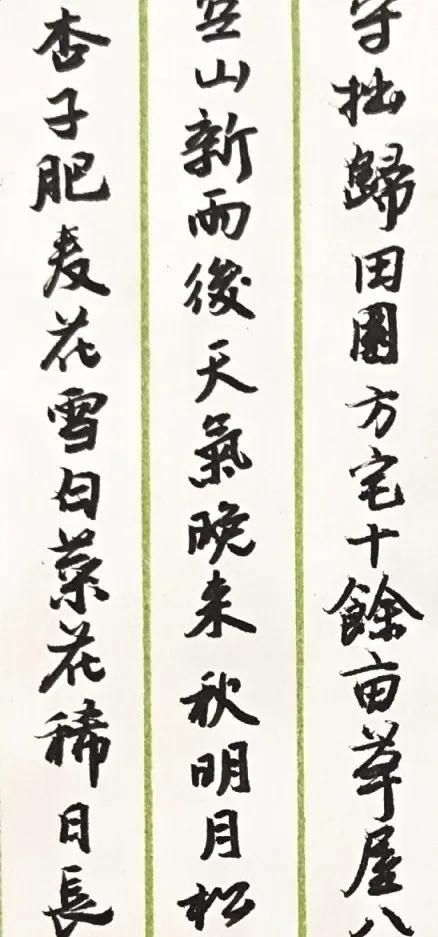 守拙歸田園方宅十餘亩草屋八
空山新雨後天氣晚来秋明月松
杏子肥麦花雪白菜花稀日長